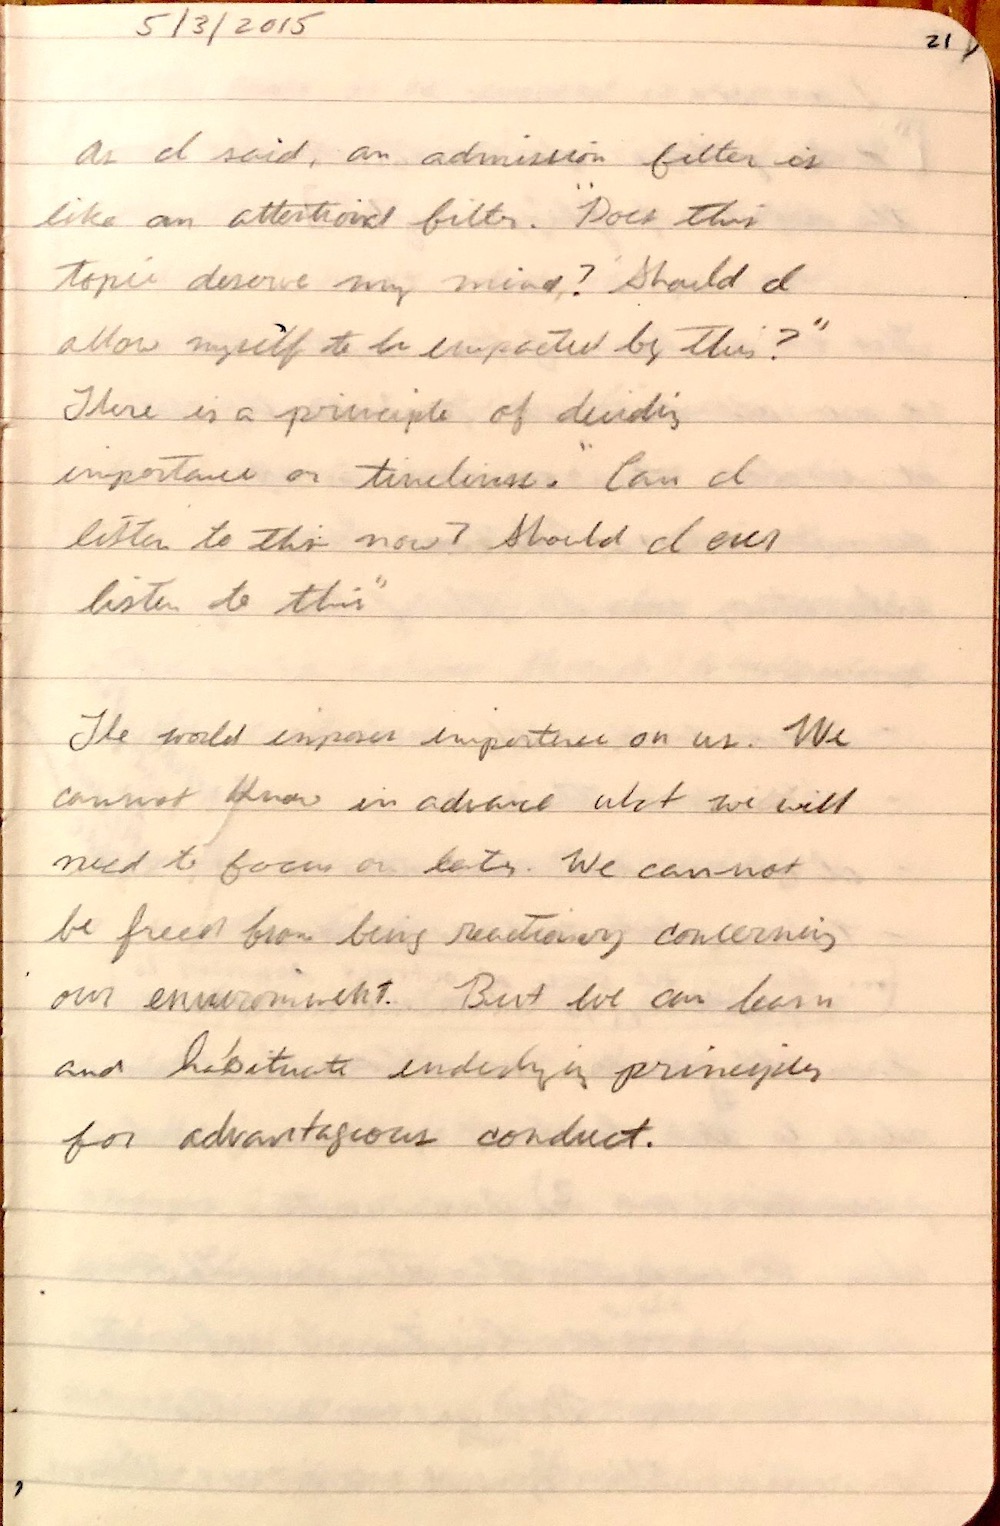 5/3/2015
21
As I said, an admission filter is
like an attentional filter. "Does this
topic deserve my mind? Should I
allow myself to be impacted by this?"
There is a principle of deciding
importance or timeliness. "Can I
listen to this now? Should I ever
listen to this"
The world imposes importance on us. We
cannot know in advance what we will
need to focus on later. We cannot
be freed from being reactionary concerning
our environment. But we can learn
and habituate underlying principles
for advantageous conduct.